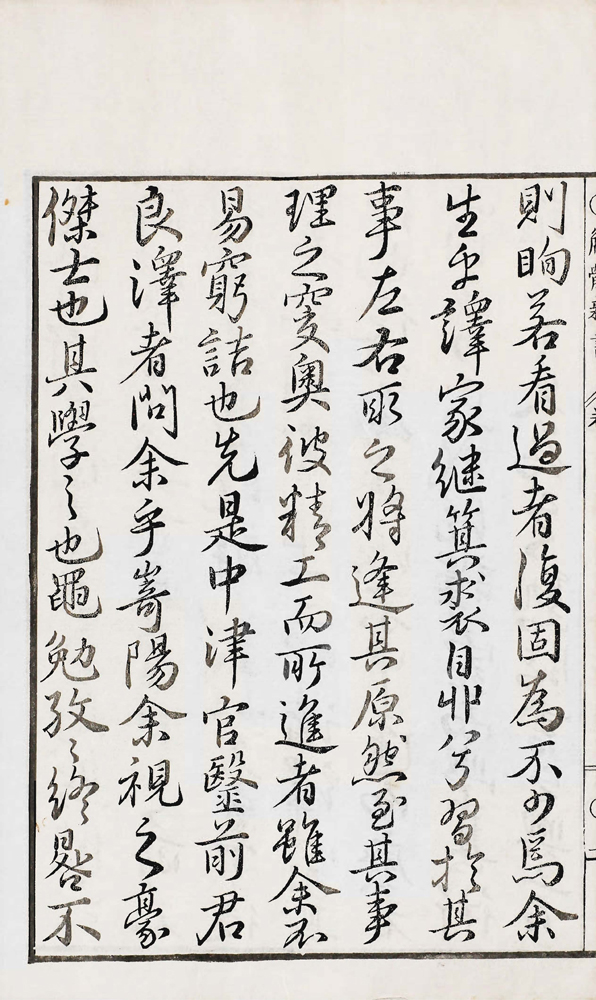 則眴若看過者復固為不少焉余
生乎譯家継箕裘自丱兮習於其
事左右取之将逢其原然至其事
理之窔奧彼精工而所進者雖余不
易窮詰也先是中津官毉前君
良澤者問余乎嵜陽余視之豪
傑士也其學之也黽勉孜〻終晷不